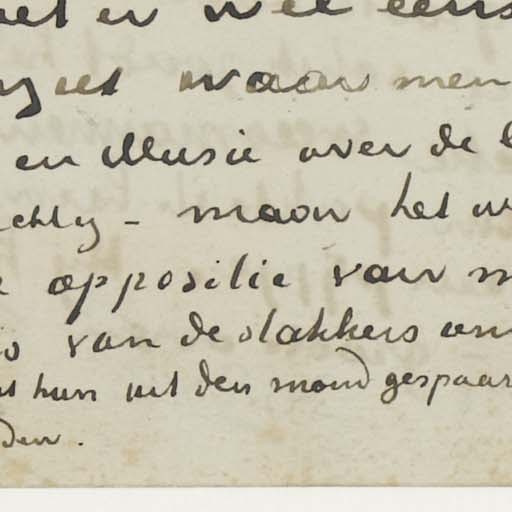 er wel eens
ziet waar men
en illusie over de
echtig - maar het
oppositie van
van de stakkers om
hun uit den mond gespaar
den.